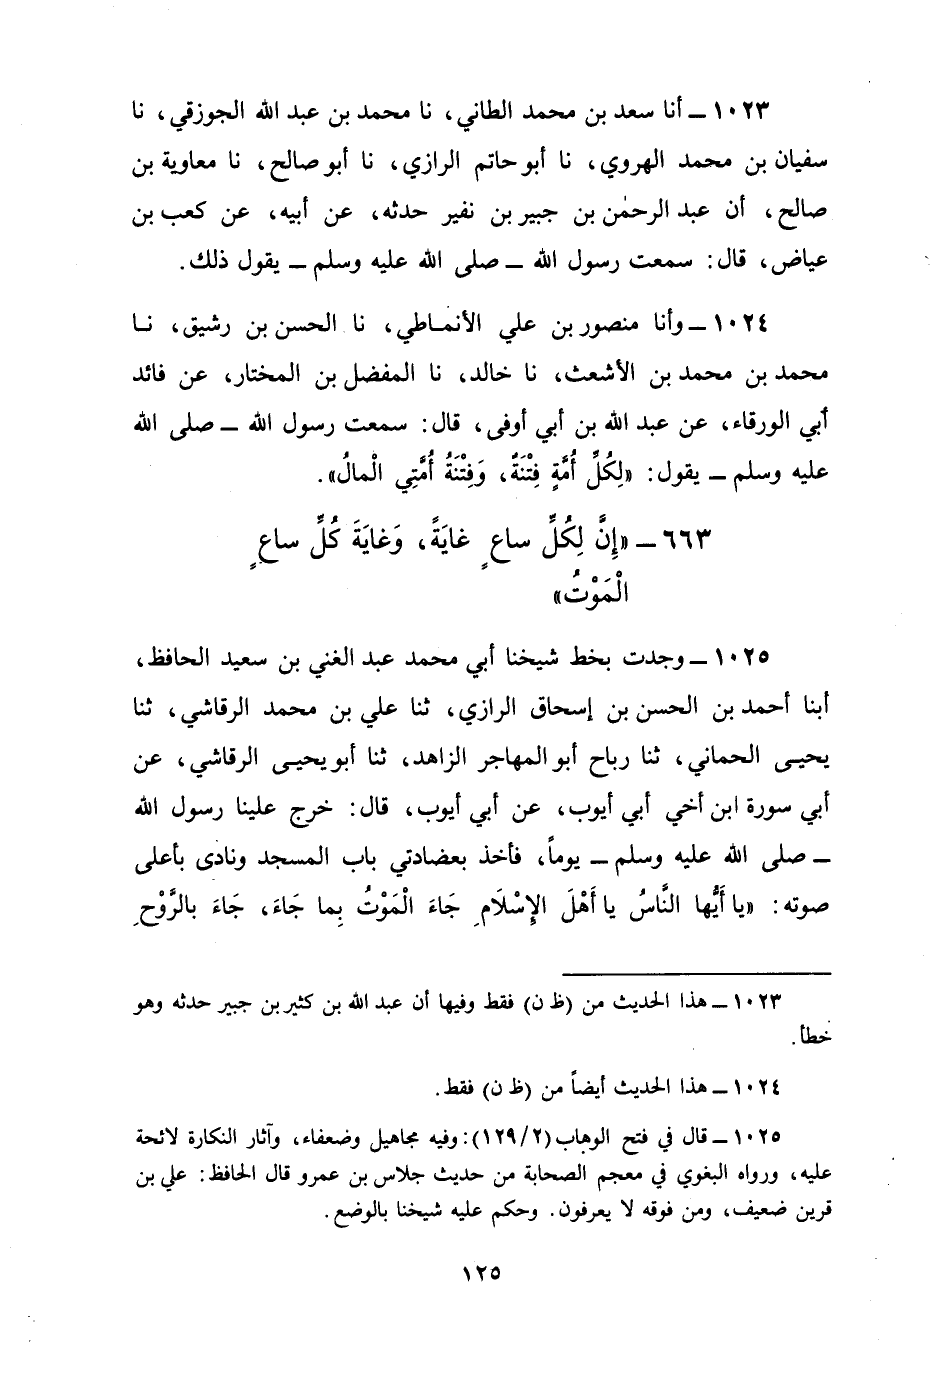 ١٠٢٣ ــ أنا سعد بن محمد الطاني، نا محمد بن عبد الله الجوزقي، نا
سفيان بن محمد الهروي، نا أبو حاتم الرازي، نا أبو صالح، نا معاوية بن
صالح، أن عبد الرحمٰن بن جبير بن نفير حدثه، عن أبيه، عن كعب بن
عياض، قال: سمعت رسول الله ــ صلى الله عليه وسلم ــ يقول ذلك.
١٠٢٤ ــ وأنا منصور بن علي الأنماطي، نا الحسن بن رشيق، نا
محمد بن محمد بن الأشعث، نا خالد، نا المفضل بن المختار، عن فائد
أبي الورقاء، عن عبد الله بن أبي أوفى، قال: سمعت رسول الله ــ صلى الله
عليه وسلم ــ يقول: «لِكُلِّ أُمَّةٍ فِتْنَةٌ، وَفِتْنَةُ أُمَّتِي الْمالُ».
٦٦٣ ــ «إِنَّ لِكُلِّ ساعٍ غايَةً، وَغايَةَ كُلِّ ساعٍ
الْمَوْتُ»
١٠٢٥ ــ وجدت بخط شيخنا أبي محمد عبد الغني بن سعيد الحافظ،
أبنا أحمد بن الحسن بن إسحاق الرازي، ثنا علي بن محمد الرقاشي، ثنا
يحيى الحماني، ثنا رباح أبو المهاجر الزاهد، ثنا أبو يحيى الرقاشي، عن
أبي سورة ابن أخي أبي أيوب، عن أبي أيوب، قال: خرج علينا رسول الله
ــ صلى الله عليه وسلم ــ يوماً، فأخذ بعضادتي باب المسجد ونادى بأعلى
صوته: «يا أَيُّها النَّاسُ يا أَهْلَ الإِسْلَامِ جَاءَ الْمَوْتُ بِما جَاءَ، جَاءَ بالرَّوْحِ
١٠٢٣ ــ هذا الحديث من (ظ ن) فقط وفيها أن عبد الله بن كثير بن جبير حدثه وهو
خطأ.
١٠٢٤ ــ هذا الحديث أيضاً من (ظ ن) فقط.
١٠٢٥ ــ قال في فتح الوهاب (٢/ ١٢٩): وفيه مجاهيل وضعفاء، وآثار النكارة لائحة
عليه، ورواه البغوي في معجم الصحابة من حديث جلاس بن عمرو قال الحافظ: علي بن
قرين ضعيف، ومن فوقه لا يعرفون. وحكم عليه شيخنا بالوضع.
١٢٥